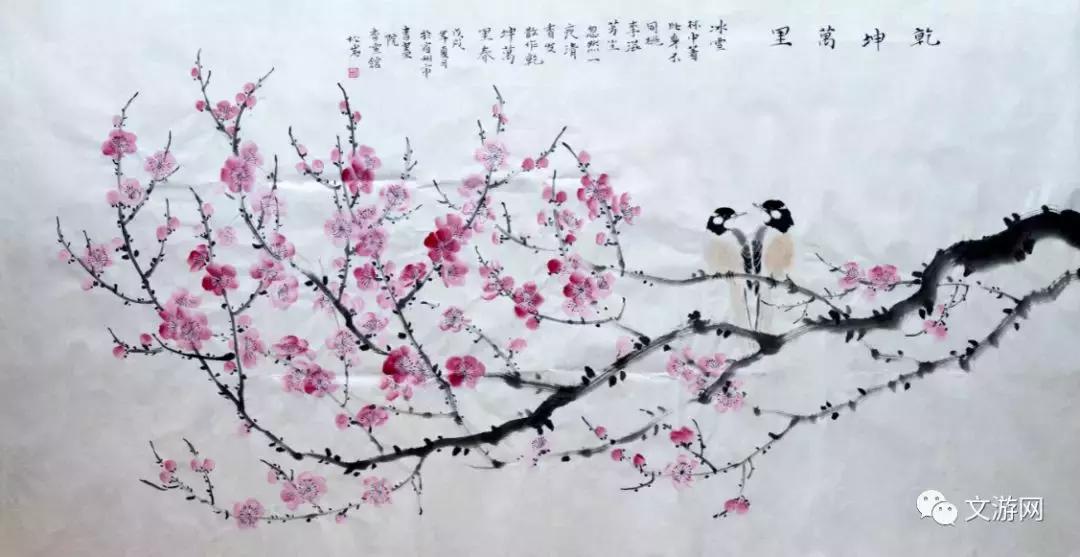 乾坤萬里
冰雪
林中著
此身不
同桃
李混
芳尘
忽然一
夜清
香发
散作乾
坤萬
里春
戊戌
年夏月
於宿州市
書畫
院
文游网